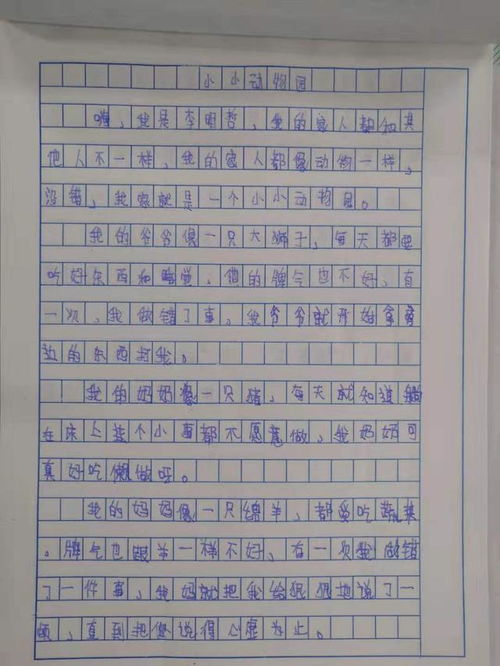 小小动物园
嗨，我是李明哲，我的家人都和其
他人不一样，我的家人都像动物一样，
没错，我家就是一个小小动物园。
我的爷爷像一只大狮子，每天都要
吃好东西和睡觉，他的脾气也不好，有
一次，我做错了事，我爷爷就开始拿旁
边的东西打我。
我的奶奶像一只猪，每天就知道躺
在床上连个小事都不愿意做，我奶奶可
真好吃懒做呀。
我的妈妈像一只绵羊，都爱吃蔬菜
。脾气也跟羊一样不好，有一次我做错
了一件事，我妈就把我给狠狠地说了一
顿，直到把您说得心虚为止。